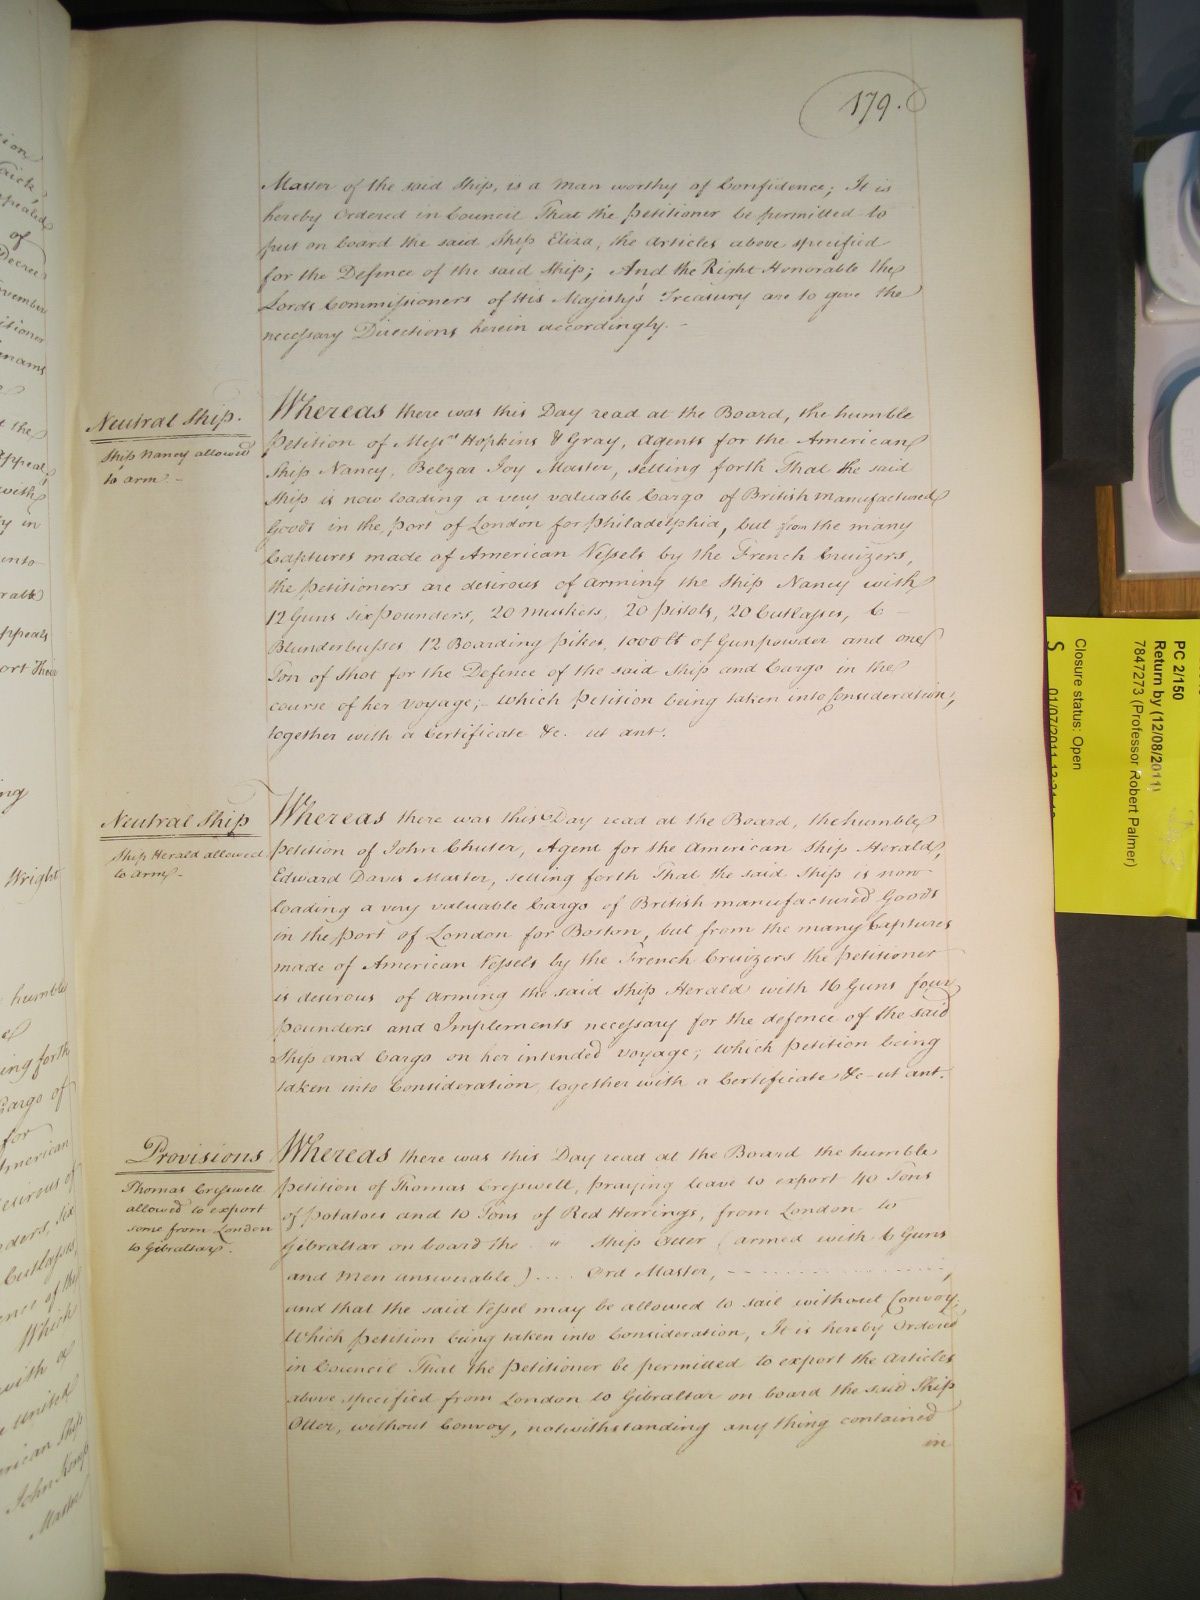 179.
Master of the said Ship, is a Man worthy of Confidence; It is
hereby Ordered in Council That the Petitioner be permitted to
put on board the said Ship Eliza, the Articles above specified
for the Defence of the said Ship; And the Right Honorable the
Lords Commissioners of His Majesty's Treasury are to give the
necessary Directions herein accordingly. -
Neutral Ship.
Ship Nancy allowed
to arm. -
Whereas there was this Day read at the Board, the humble
Petition of Mess.rs Hopkins & Gray, Agents for the American
Ship Nancy, Belzar Joy Master, setting forth That the said
Ship is now loading a very valuable Cargo of British Manufactured
Goods in the Port of London for Philadelphia, but from the many
Captures made of American Vessels by the French Cruizers,
the Petitioners are desirous of arming the Ship Nancy with
12 Guns six Pounders, 20 Muskets, 20 Pistols, 20 Cutlasses, 6 -
Blunderbusses, 12 Boarding Pikes, 1000 lb of Gunpowder and one
Ton of Shot for the Defence of the said Ship and Cargo in the
course of her Voyage; - Which Petition being taken into Consideration,
together with a Certificate &c. ut ant.
Neutral Ship
Ship Herald allowed
to arm. -
Whereas there was this Day read at the Board, the humble
Petition of John Chuter, Agent for the American Ship Herald,
Edward Davis Master, setting forth That the said Ship is now
loading a very valuable Cargo of British manufactured Goods
in the Port of London for Boston, but from the many Captures
made of American Vessels by the French Cruizers the Petitioner
is desirous of arming the said Ship Herald with 16 Guns four
Pounders and Implements necessary for the defence of the said
Ship and Cargo on her intended Voyage; Which Petition being
taken into Consideration, together with a Certificate &c - ut ant.
Provisions
Thomas Cresswell
allowed to export
some from London
to Gibraltar.
Whereas there was this Day read at the Board the humble
Petition of Thomas Cresswell, praying leave to export 40 Tons
of Potatoes and 10 Tons of Red Herrings, from London to
Gibraltar on board the " Ship Otter (armed with 6 Guns
and Men answerable) .... Ord Master, - - - - - ,
and that the said Vessel may be allowed to sail without Convoy;
Which Petition being taken into Consideration, It is hereby Ordered
in Council That the Petitioner be permitted to export the Articles
above specified from London to Gibraltar on board the said Ship
Otter, without Convoy, notwithstanding any thing contained
in
PC 2/150
Return by (12/08/2011)
7847273 (Professor Robert Palmer)
Closure status: Open
S
01/07/2011